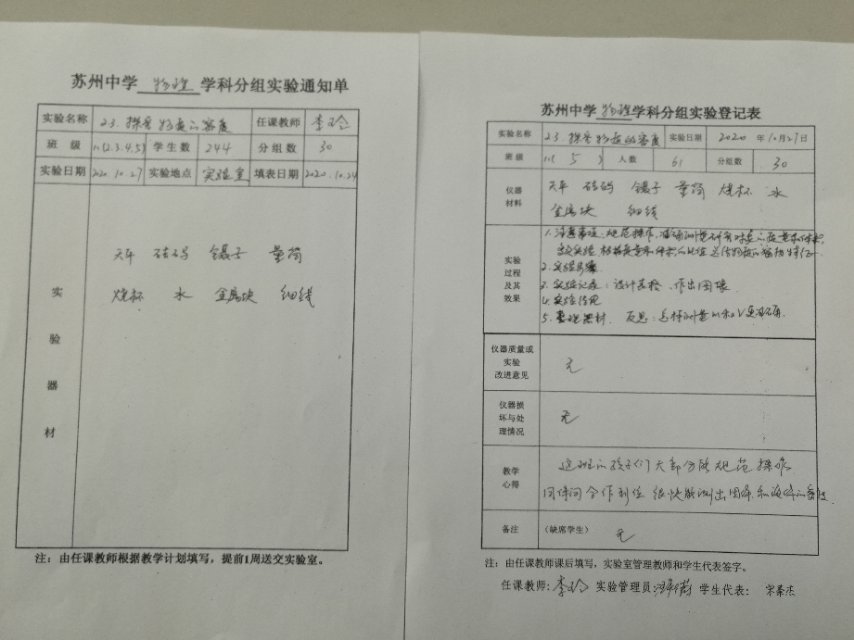 苏州中学 物理 学科分组实验通知单
实验名称 2.3. 探究物质的密度 任课教师 李玲
班 级 11(2.3.4.5) 学生数 244 分组数 30
实验日期 2020.10.27 实验地点 实验室 填表日期 2020.10.24
实验器材
天平 砝码 镊子 量筒
烧杯 水 金属块 细线
注：由任课教师根据教学计划填写，提前1周送交实验室。
苏州中学 物理 学科分组实验登记表
实验名称 2.3. 探究物质的密度 实验日期 2020 年10月27日
班 级 11( 5 ) 人数 61 分组数 30
仪器材料
天平 砝码 镊子 量筒 烧杯 水
金属块 细线
实验过程及其效果
1. 注意事项、规范操作
2. 实验步骤
3. 实验记录：设计表格、作出图像
4. 实验结论
5. 整理器材 反思：怎样测量
仪器质量或实验改进意见 无
仪器损坏与处理情况 无
教学心得
这班的孩子们大部分能规范操作
同伴间合作到位 很快能测出固体和液体的密度.
备注 (缺席学生) 无
注：由任课教师课后填写，实验室管理教师和学生代表签字。
任课教师：李玲 实验管理员： 学生代表：